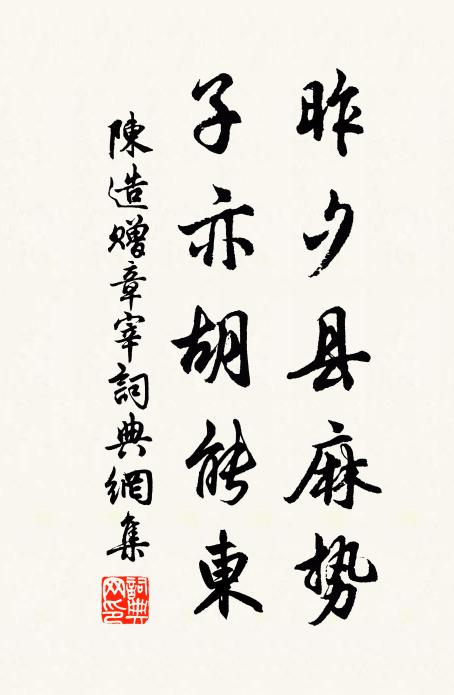 昨夕县麻势
子亦胡能東
陳造贈章宰詞典網集
詞典网印